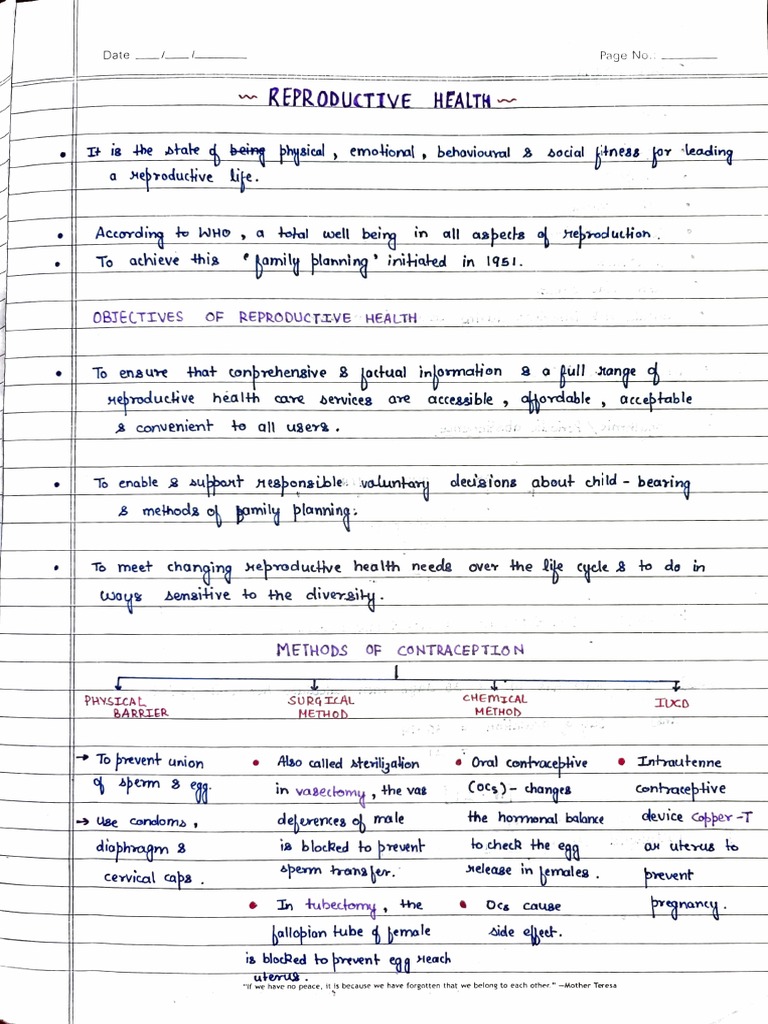 Date ___/___/______ Page No.: ______
~ REPRODUCTIVE HEALTH ~
• It is the state of being physical, emotional, behavioural & social fitness for leading
a reproductive life.
• According to WHO, a total well being in all aspects of reproduction.
• To achieve this 'family planning' initiated in 1951.
OBJECTIVES OF REPRODUCTIVE HEALTH
• To ensure that conprehensive & factual information & a full range of
reproductive health care services are accessible, affordable, acceptable
& convenient to all users.
• To enable & support responsible voluntary decisions about child-bearing
& methods of family planning.
• To meet changing reproductive health needs over the life cycle & to do in
ways sensitive to the diversity.
METHODS OF CONTRACEPTION
PHYSICAL
BARRIER
→ To prevent union
of sperm & egg.
→ Use condoms,
diaphragm &
cervical caps.
SURGICAL
METHOD
• Also called sterilization
in vasectomy, the vas
deferences of male
is blocked to prevent
sperm transfer.
• In tubectomy, the
fallopian tube of female
is blocked to prevent egg reach
uterus.
CHEMICAL
METHOD
• Oral contraceptive
(OCs) - changes
the hormonal balance
to check the egg
release in females.
• OCs cause
side effect.
IUCD
• Intrautenne
contraceptive
device Copper-T
uterus to
prevent
pregnancy.
"If we have no peace, it is because we have forgotten that we belong to each other." —Mother Teresa